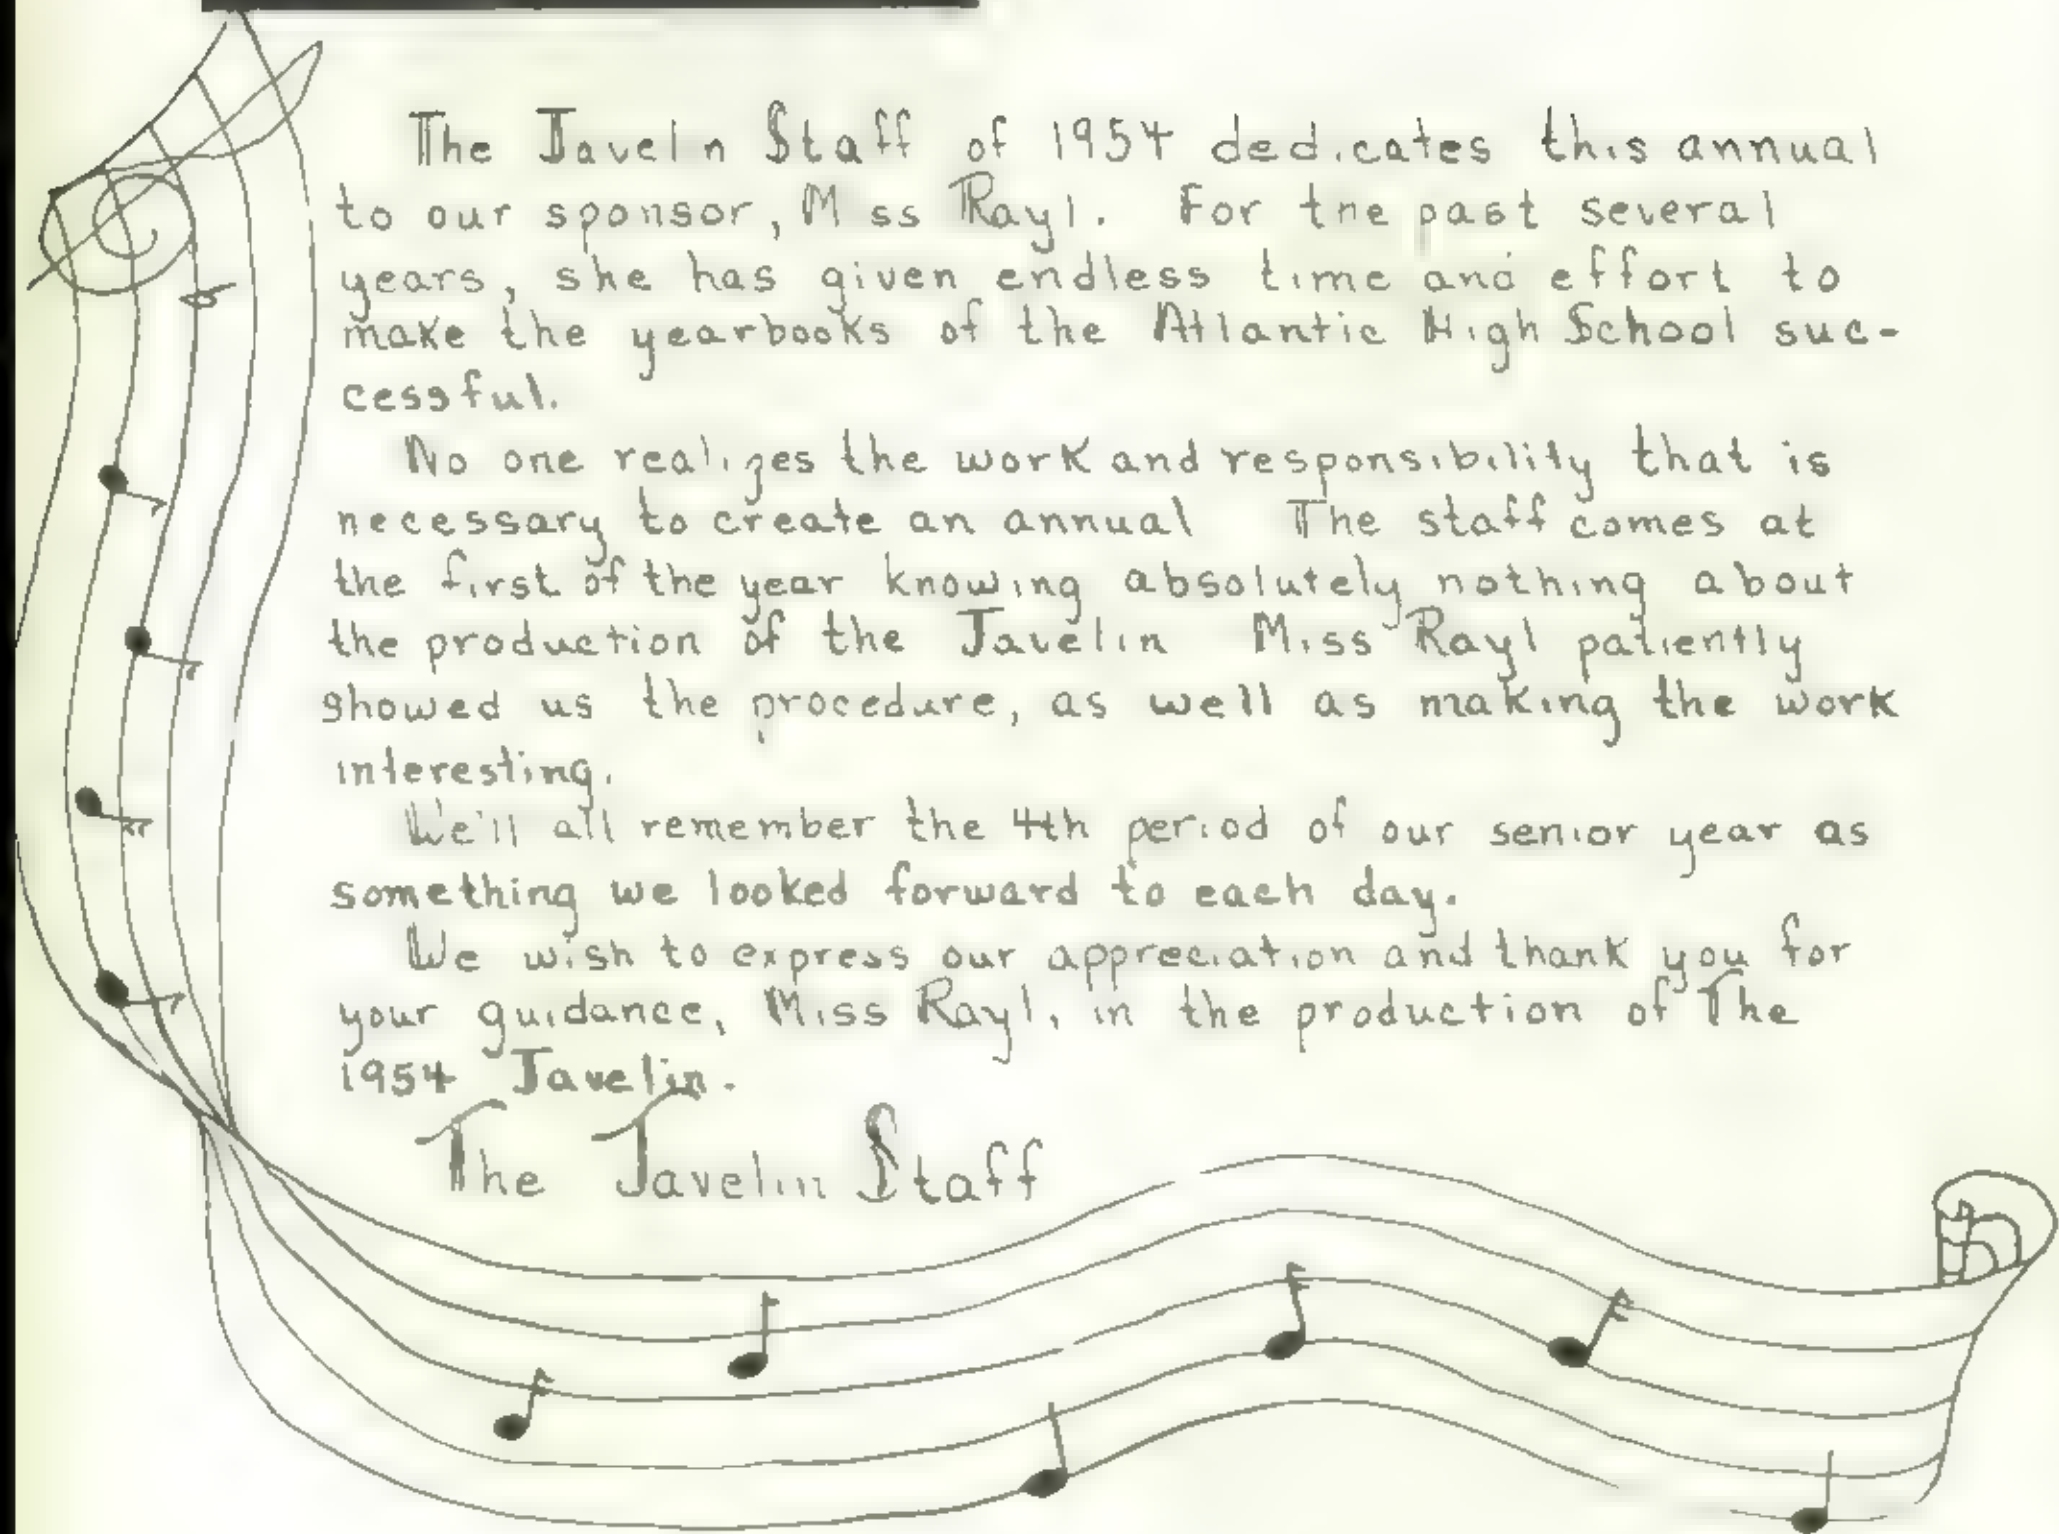 The Javelin Staff of 1954 dedicates this annual
to our sponsor, Miss Rayl. For the past several
years, she has given endless time and effort to
make the yearbooks of the Atlantic High School suc-
cessful.
No one realizes the work and responsibility that is
necessary to create an annual The staff comes at
the first of the year knowing absolutely nothing about
the production of the Javelin Miss Rayl patiently
showed us the procedure, as well as making the work
interesting.
We'll all remember the 4th period of our senior year as
something we looked forward to each day.
We wish to express our appreciation and thank you for
your guidance, Miss Rayl, in the production of The
1954 Javelin.
The Javelin Staff